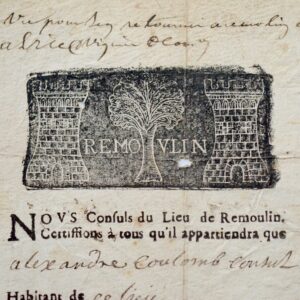 pour Seg retourner a remolin
REMOVLIN
NOVS Consuls du Lieu de Remoulin.
Certiffions à tous qu'il appartiendra que
alexandre coulomb consul
Habitant de ce lieu